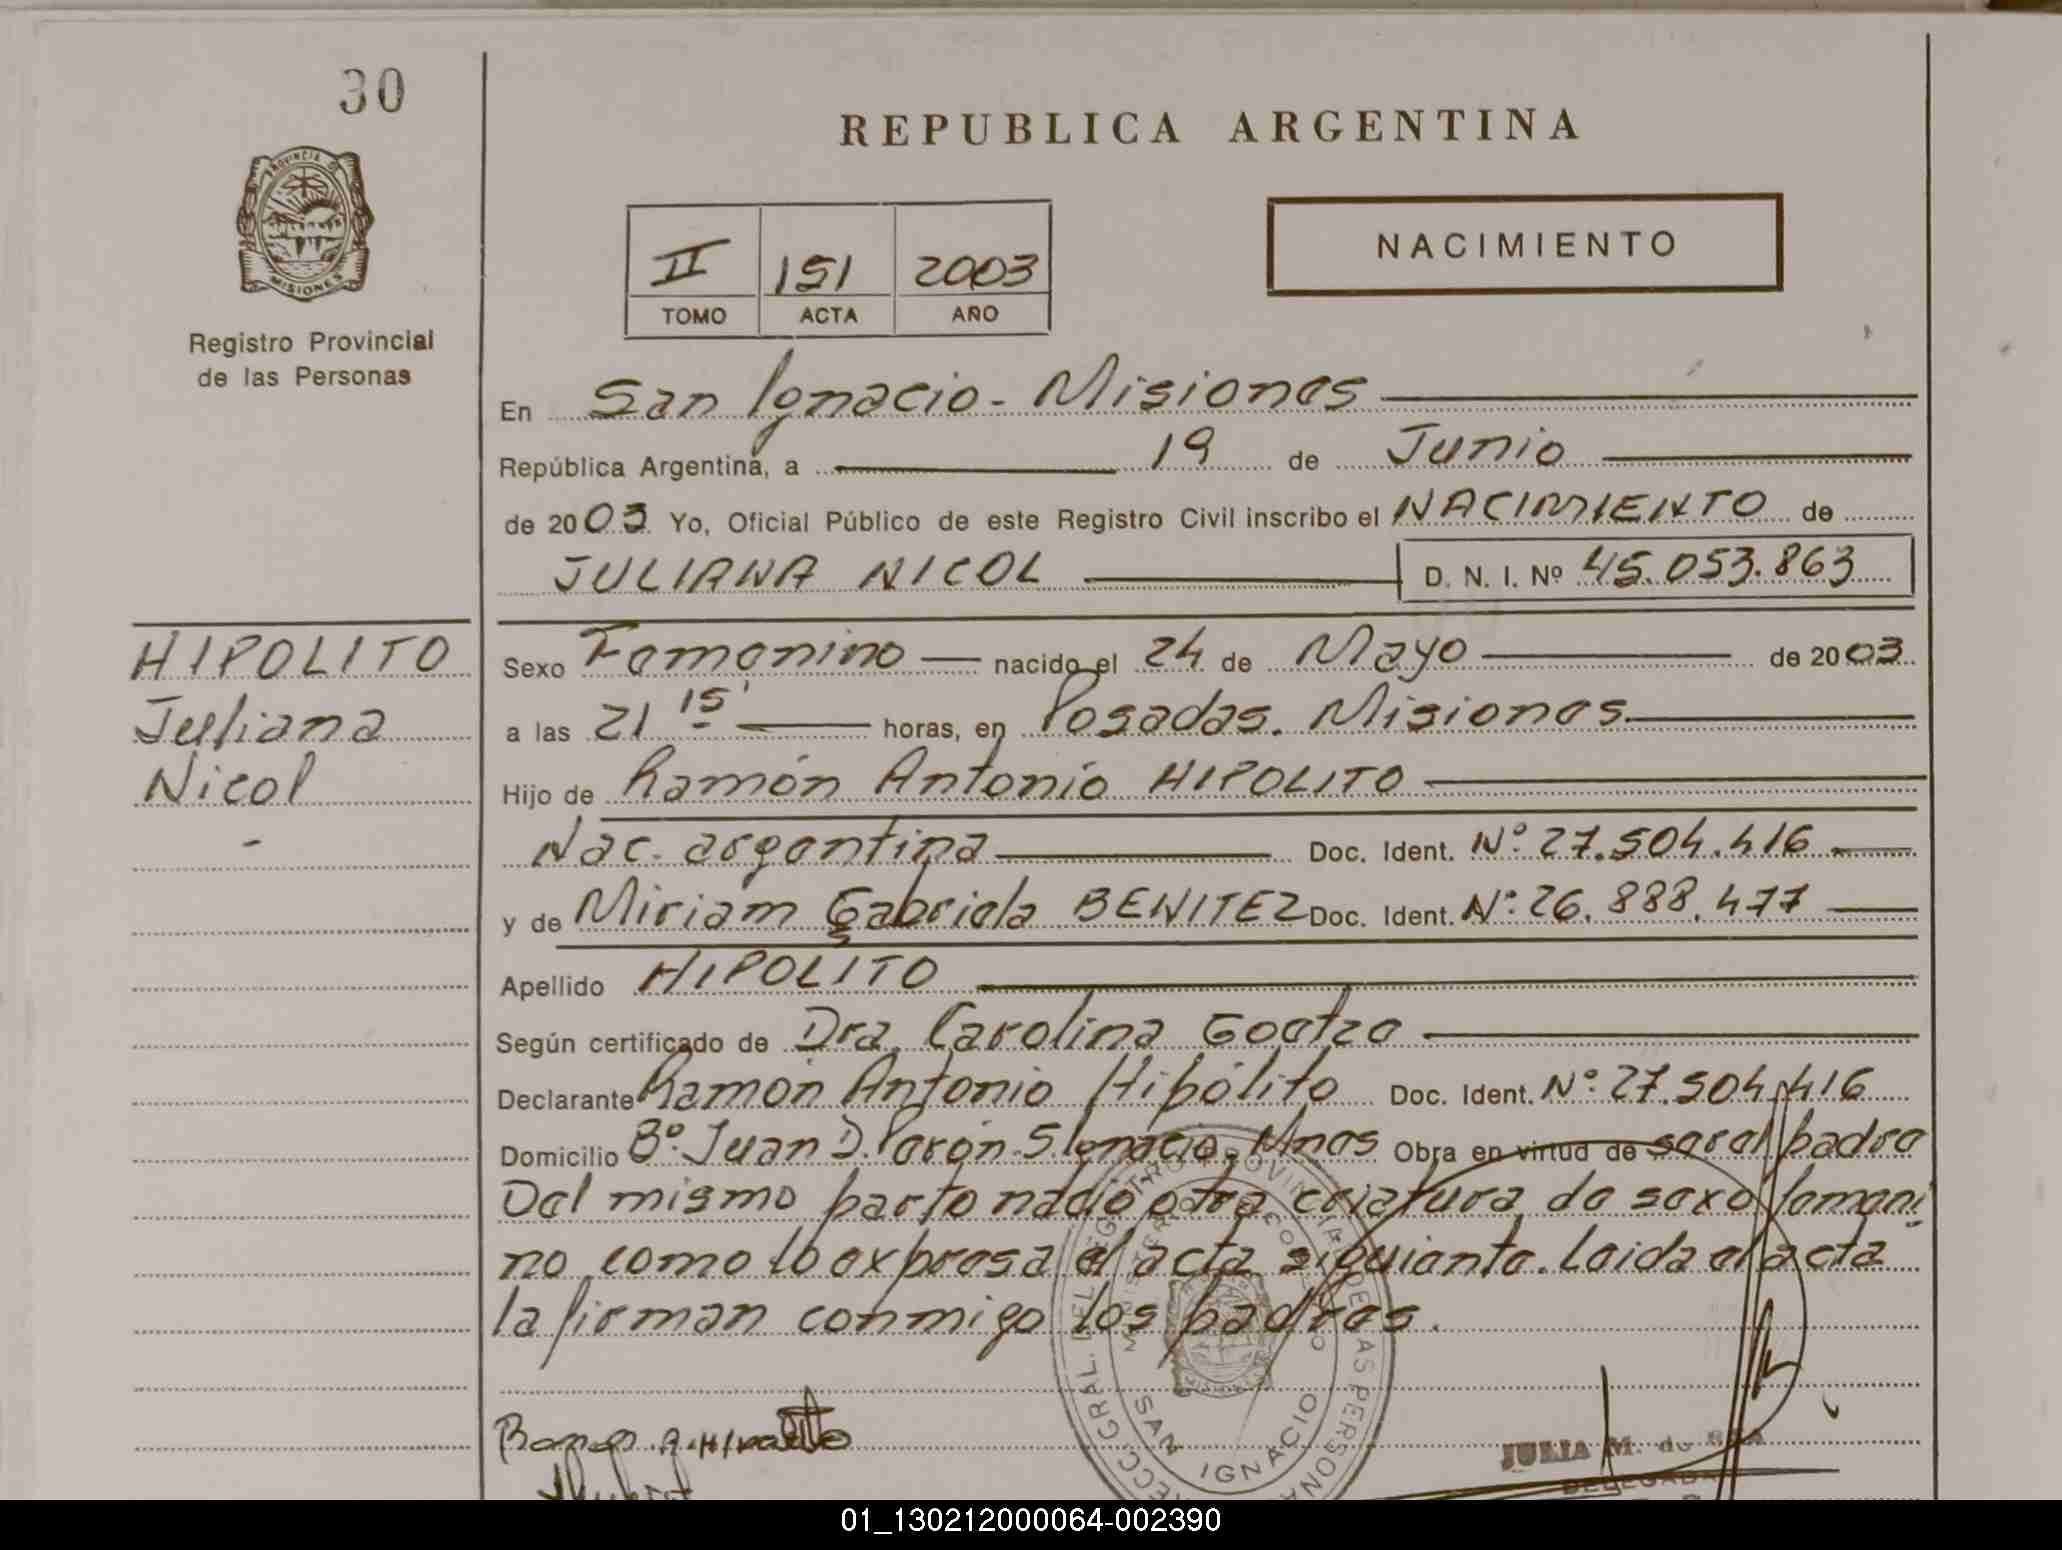 30
REPUBLICA ARGENTINA
PROVINCIA DE
MISIONES
NACIMIENTO
II 151 2003
TOMO ACTA AÑO
Registro Provincial
de las Personas
En San Ignacio - Misiones
República Argentina, a 19 de Junio
de 2003 Yo, Oficial Público de este Registro Civil inscribo el NACIMIENTO de
JULIANA NICOL D. N. I. Nº 45.053.863
HIPOLITO
Juliana
Nicol
-
Sexo Femenino nacido el 24 de Mayo de 2003
a las 21 15' horas, en Posadas. Misiones
Hijo de Ramón Antonio HIPOLITO
Nac. argentina Doc. Ident. Nº 27.504.416
y de Miriam Gabriela BENITEZ Doc. Ident. Nº 26.888.477
Apellido HIPOLITO
Según certificado de Dra. Carolina Goetze
Declarante Ramón Antonio Hipólito Doc. Ident. Nº 27.504.416
Domicilio Bº Juan D. Perón - S. Ignacio - Mnes Obra en virtud de ser el padre
Del mismo parto nació otra criatura de sexo femeni
no como lo expresa el acta siguiente. Leida el acta
la firman conmigo los padres.
SAN IGNACIO
JULIA M. de
01_130212000064-002390